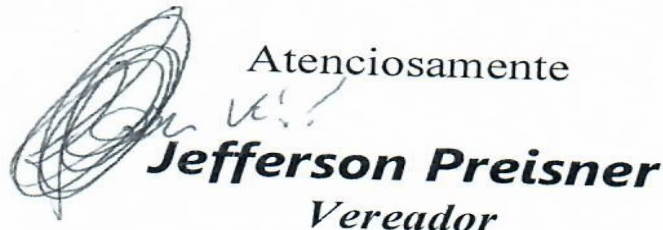 Atenciosamente
Jefferson Preisner
Vereador